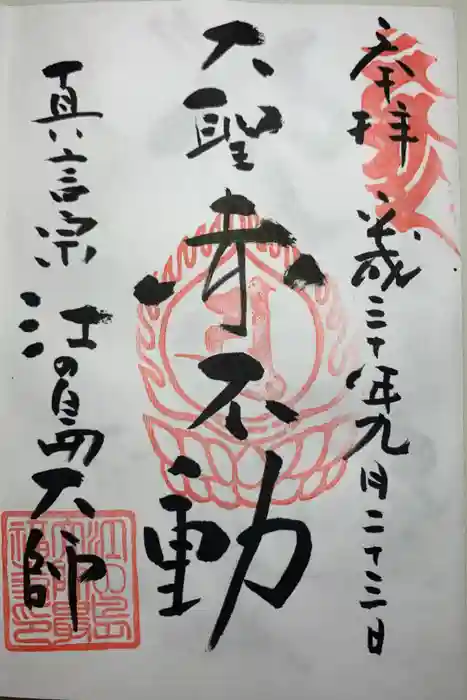 奉拝 平成三十年九月二十三日
大聖赤不動
真言宗 江の島大師